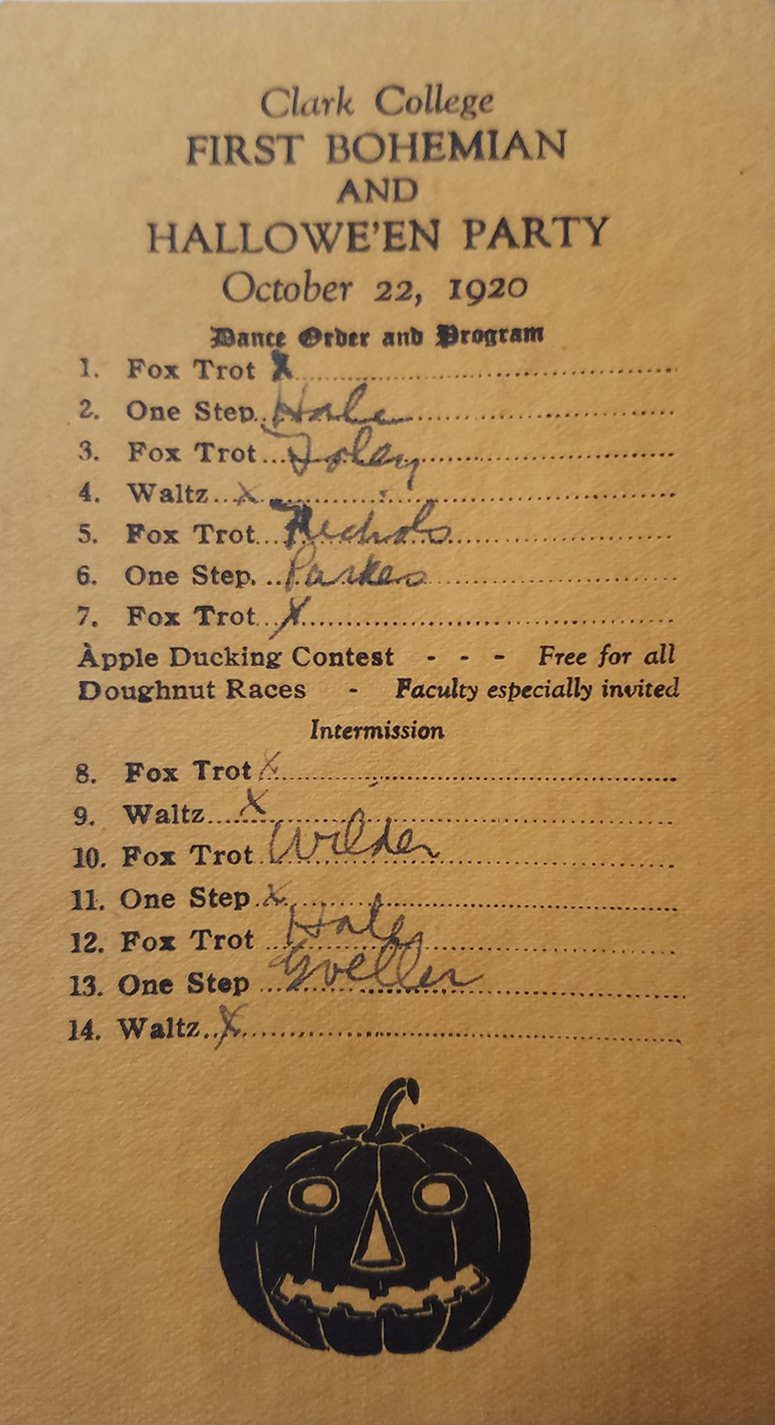 Clark College
FIRST BOHEMIAN
AND
HALLOWE'EN PARTY
October 22, 1920
Dance Order and Program
1. Fox Trot X
2. One Step Hale
3. Fox Trot Foley
4. Waltz X
5. Fox Trot Nichols
6. One Step. Parkes
7. Fox Trot X
Apple Ducking Contest - - - Free for all
Doughnut Races - Faculty especially invited
Intermission
8. Fox Trot X
9. Waltz X
10. Fox Trot Wilder
11. One Step X
12. Fox Trot Hale
13. One Step
14. Waltz X